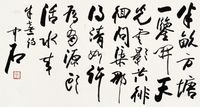 半畝方塘
一鑒開天
光雲影共徘
徊問渠那
得清如許
為有源頭
活水來
朱熹詩
中石